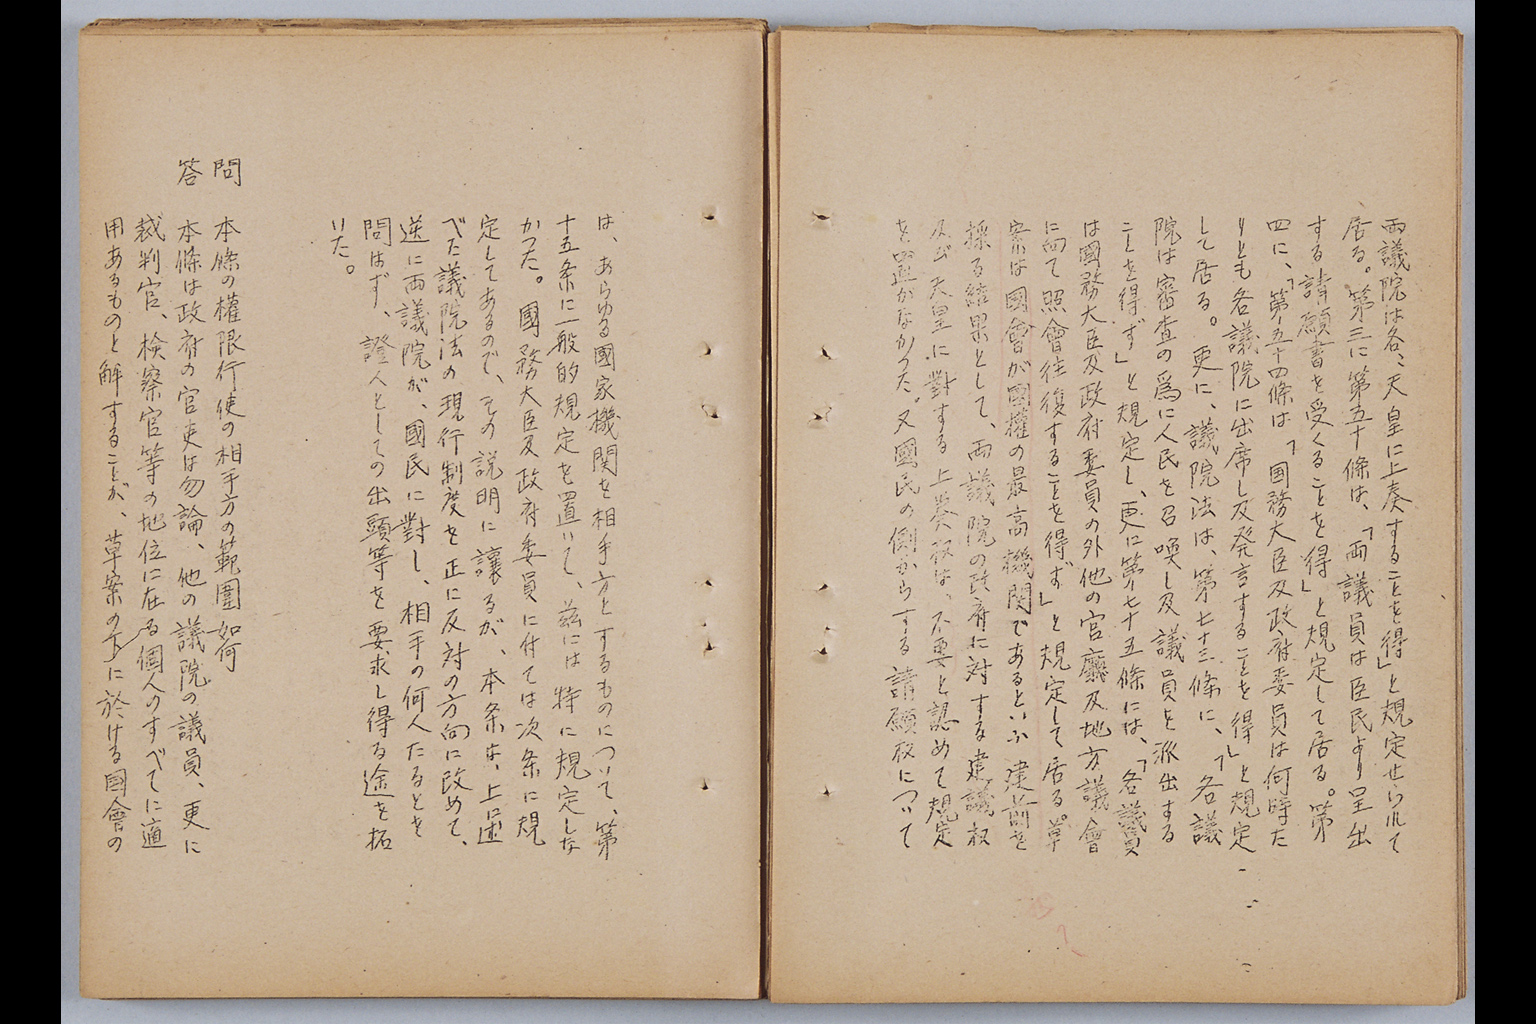 両議院は各〻天皇に上奏することを得」と規定せられて
居る。第三に第五十條は、「両議員は臣民より呈出
する請願書を受くることを得」と規定して居る。第
四に、「第五十四條は「国務大臣及政府委員は何時た
りとも各議院に出席し及発言することを得」と規定
して居る。更に、議院法は、第七十三條に、「各議
院は審査の爲に人民を召喚し及議員を派出する
ことを得ず」と規定し、更に第七十五條には、「各議員
は國務大臣及政府委員の外他の官廳及地方議會
に向て照會往復することを得ず」と規定して居る。草
案は國會が國權の最高機関であるといふ建前を
採る結果として、両議院の政府に対する建議权
及び天皇に對する上奏权は、不要と認めて規定
を置かなかつた。又國民の側からする請願权について
は、あらゆる國家機関を相手方とするものについて、第
十五条に一般的規定を置いて、茲には特に規定しな
かつた。國務大臣及政府委員に付ては次条に規
定してあるので、その説明に譲るが、本条は、上述
べた議院法の現行制度を正に反対の方向に改めて、
逆に両議院が、國民に對し、相手の何人たるとを
問はず、證人としての出頭等を要求し得る途を拓
いた。
問 本條の權限行使の相手方の範圍如何
答 本條は政府の官吏は勿論、他の議院の議員、更に
裁判官、検察官等の地位に在る個人のすべてに適
用あるものと解することが、草案の下に於ける國會の